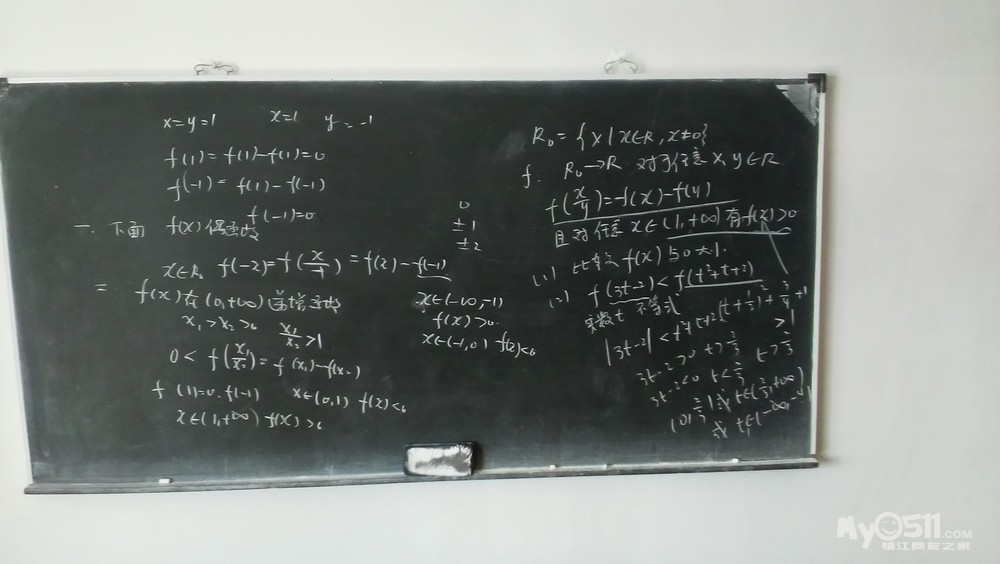 x=y=1 x=1 y=-1
f(1)=f(1)-f(1)=0
f(-1)=f(1)-f(-1)
f(-1)=0
一. 下面 f(x)偶函数
0
±1
±2
x∈R₀ f(-2)=f(x/-1)=f(2)-f(-1)
= f(x)在(0,+∞)单增函数
x₁>x₂>0 x₁/x₂>1
0<f(x₁/x₂)=f(x₁)-f(x₂)
f(1)=0.f(-1) x∈(0,1) f(x)<0
x∈(1,+∞) f(x)>0
x∈(-∞,-1)
f(x)>0
x∈(-1,0) f(x)<0
R₀={x|x∈R,x≠0}
f. R₀→R 对于任意x,y∈R
f(x/y)=f(x)-f(y)
且对任意x∈(1,+∞)有f(x)>0
(1) 比较f(x)与0大小.
(2) f(3t-2)<f(t²+t+2)
实数t 不等式
|3t-2|<t²+t+2 (t+1/2)²+3/4+1
>1
3t-2>0 t>2/3 t>2/3
3t-2<0 t<2/3
(0,2/3)或t∈(2/3,+∞)
或
MY0511.COM
镇江网友之家